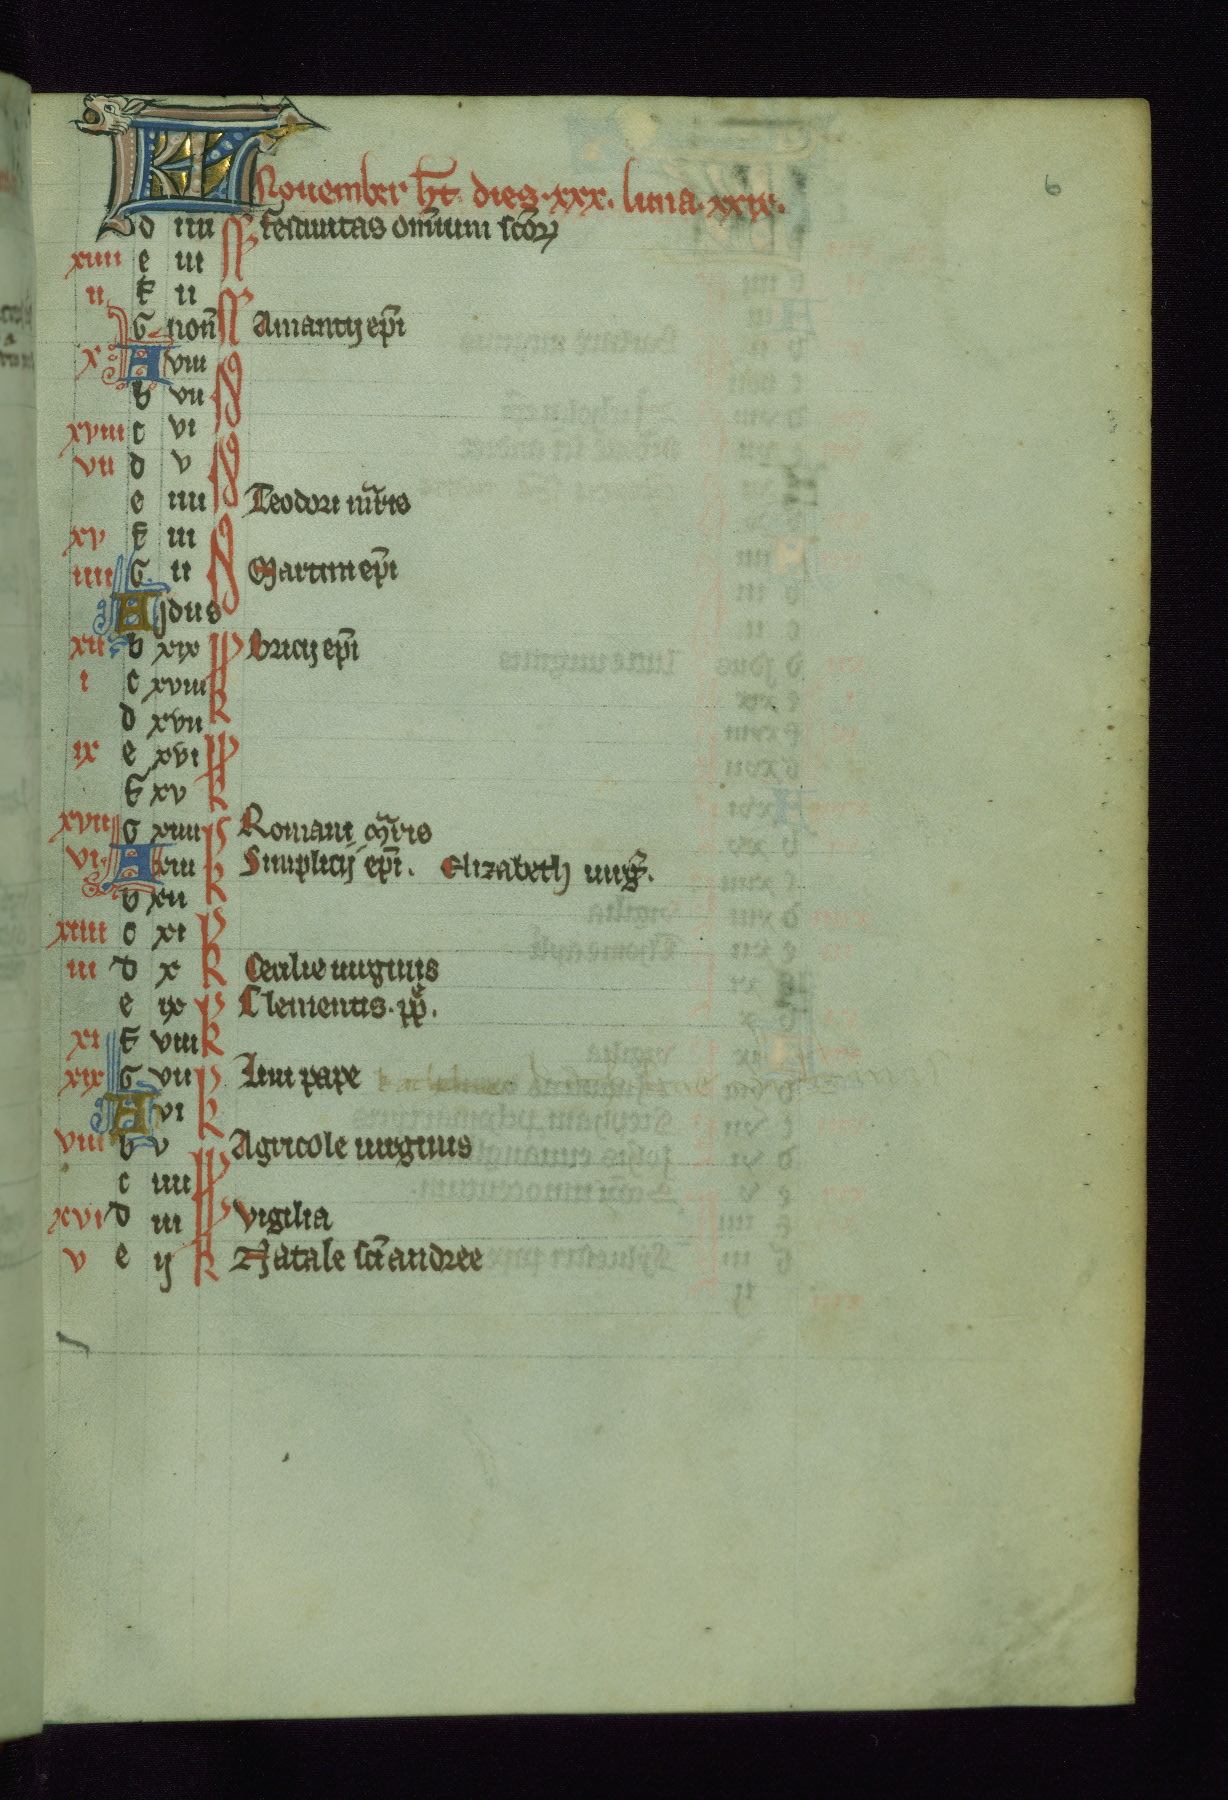 KL
Nouember ht. dies. xxx. luna. xxix.
d iiii N festiuitas omium scor
xiiii e iii
ii f ii N
G non Amantij epi
x A viii
b vii
xviii c vi
vii d v
e iiii Teodori mris
xv f iii
iiii G ii Martini epi
A jdus
xii b xix K Bricij epi
i c xviii K
d xvii
ix e xvi
f xv K
xvii G xiiii K Romani mris
vi A xiii K Simplicij epi. Elizabeth uirg.
b xii
xiiii c xi K
iii d x K Cecilie uirginis
e ix K Clementis. pp.
xi f viii K
xix G vii K Lini pape
A vi K
viii b v Agricole uirginis
c iiii
xvi d iii Vigilia
v e ij K Natale sci andree
6